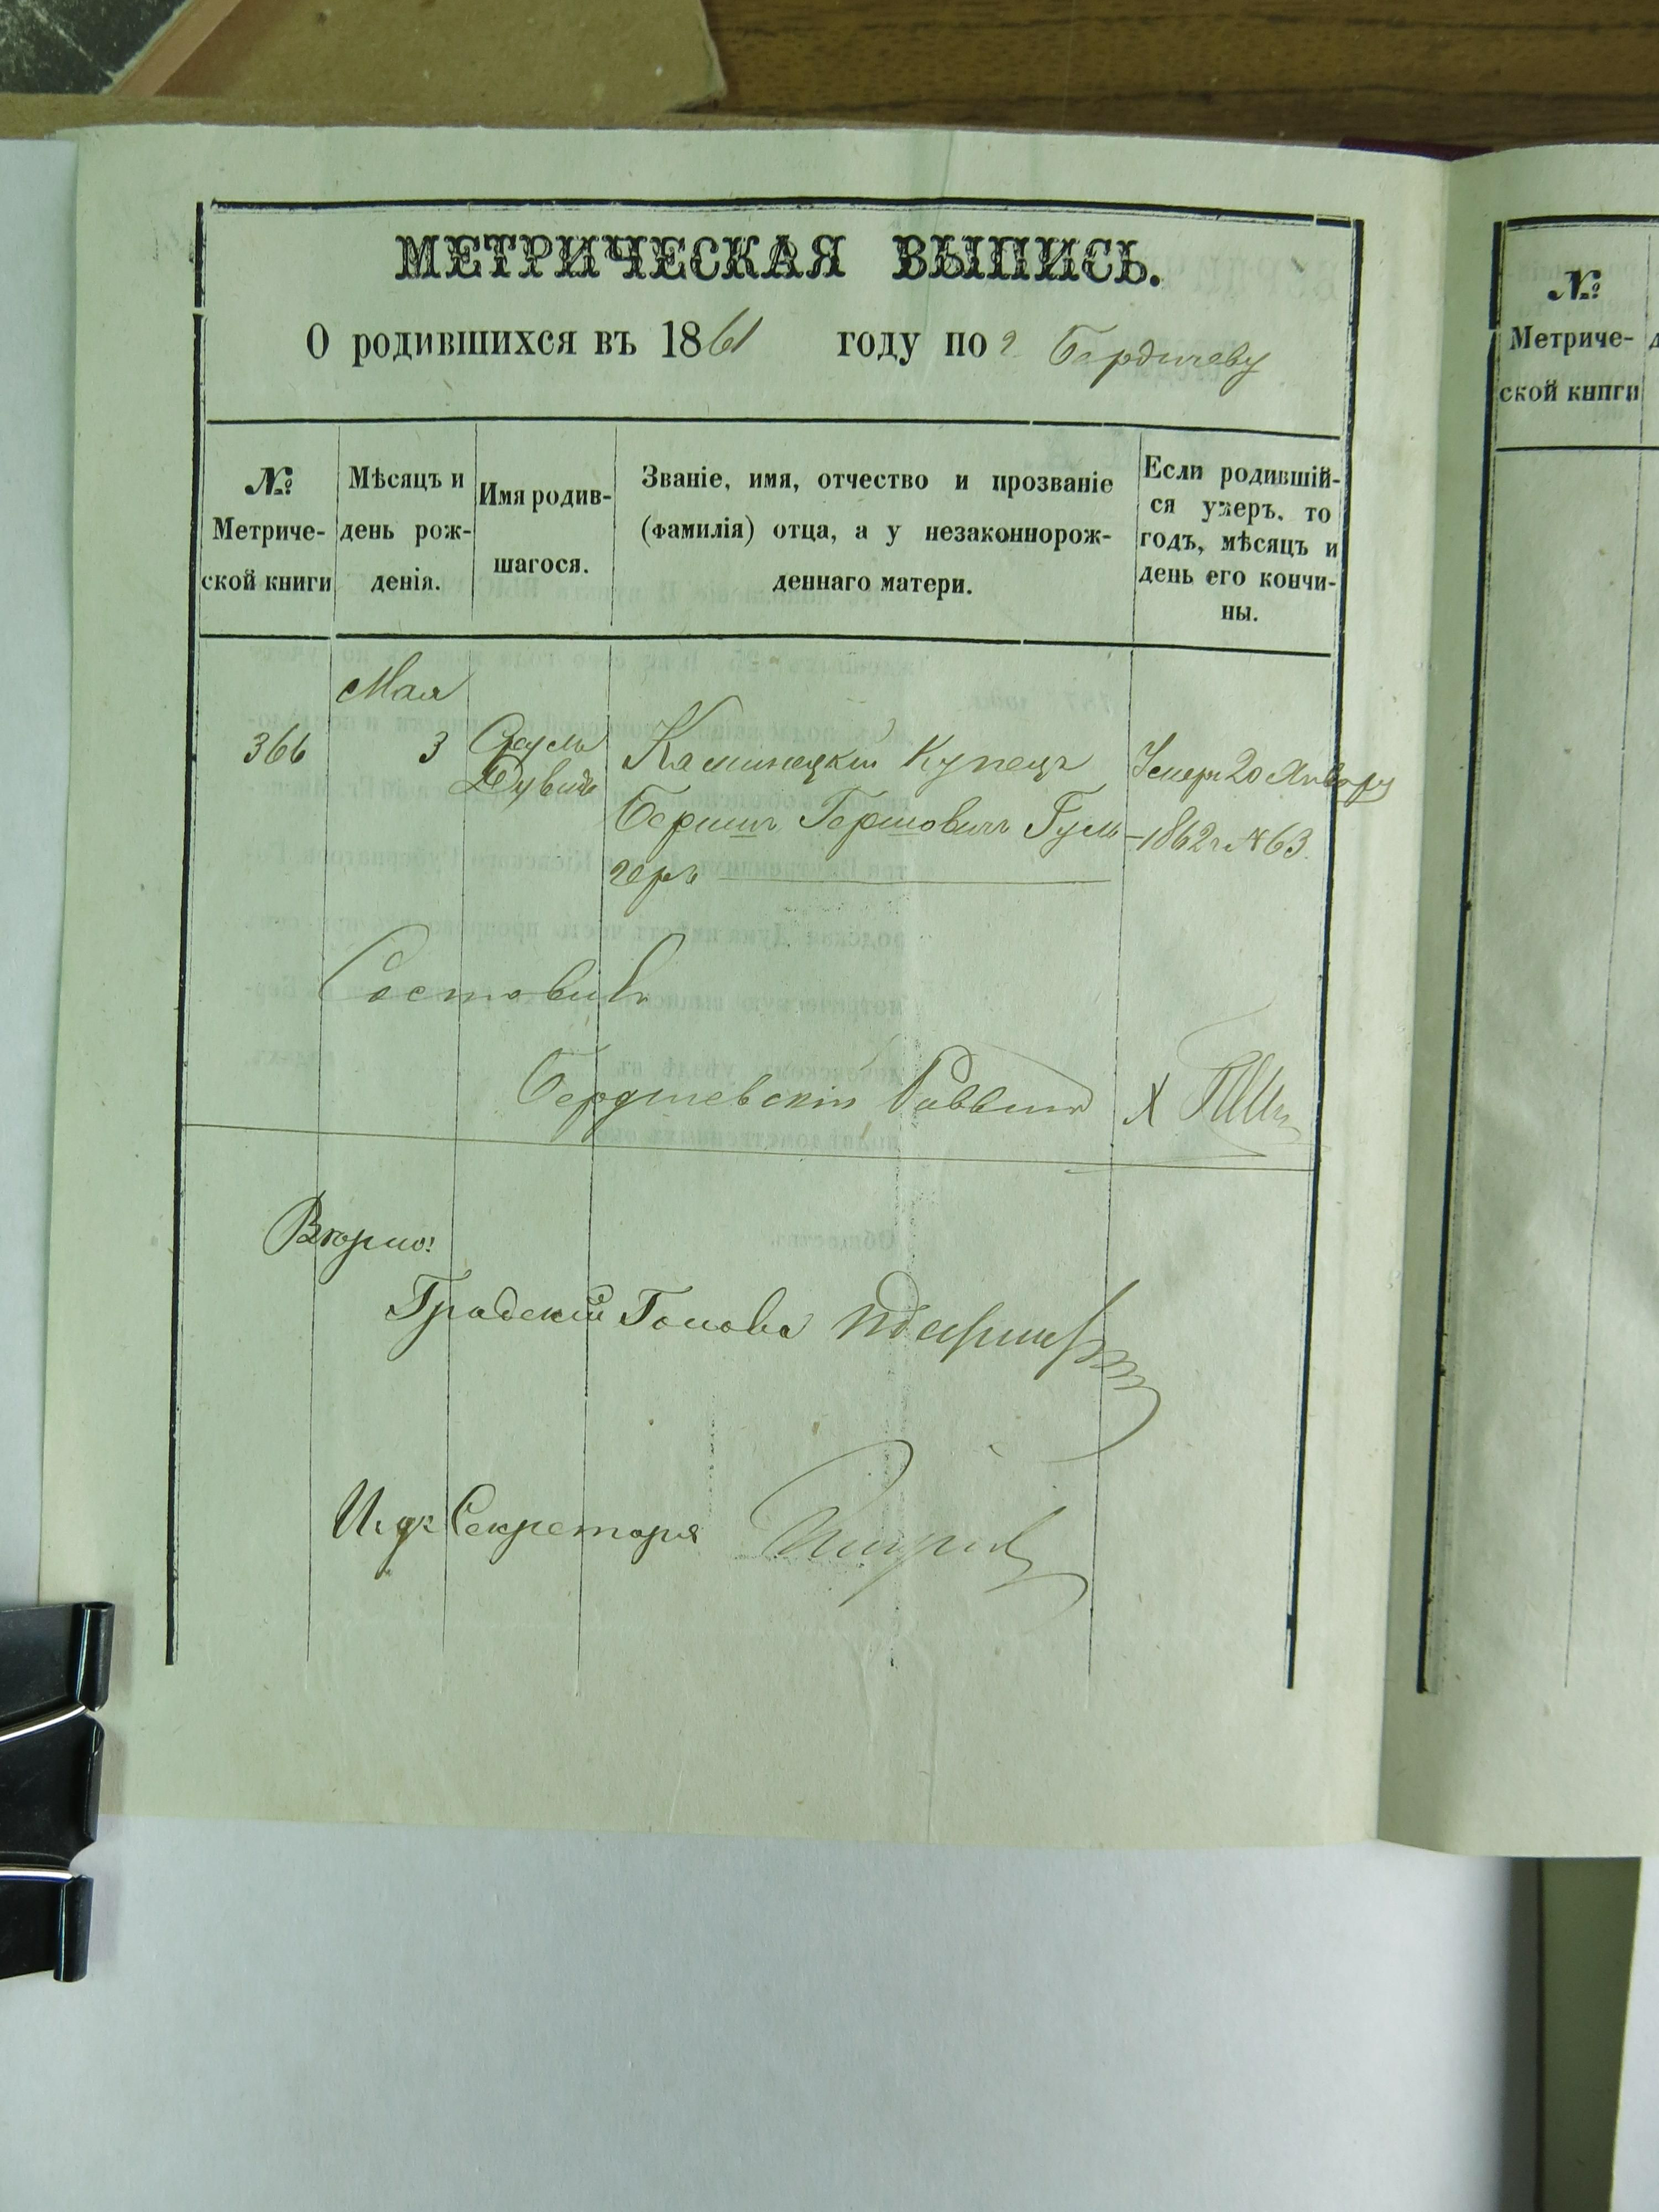 МЕТРИЧЕСКАЯ ВЫПИСЬ.
О родившихся въ 1861 году по г Бердичеву
№ Метриче- ской книги
Мѣсяцъ и день рож- денія.
Имя родив- шагося.
Званіе, имя, отчество и прозваніе
(фамилія) отца, а у незаконнорож-
деннаго матери.
Если родившій-
ся умеръ, то
годъ, мѣсяцъ и
день его кончи-
ны.
Мая
366 3 Дувидъ
Каминецкій Купецъ
Бершъ Гершовичъ Гуль-
черъ
Умеръ 20 Январу
1862 г № 63.
Составилъ
Бердичевскій Раввинъ
Вѣрно:
Градскій Голова
И. д. Секретаря
№
Метриче-
ской книги